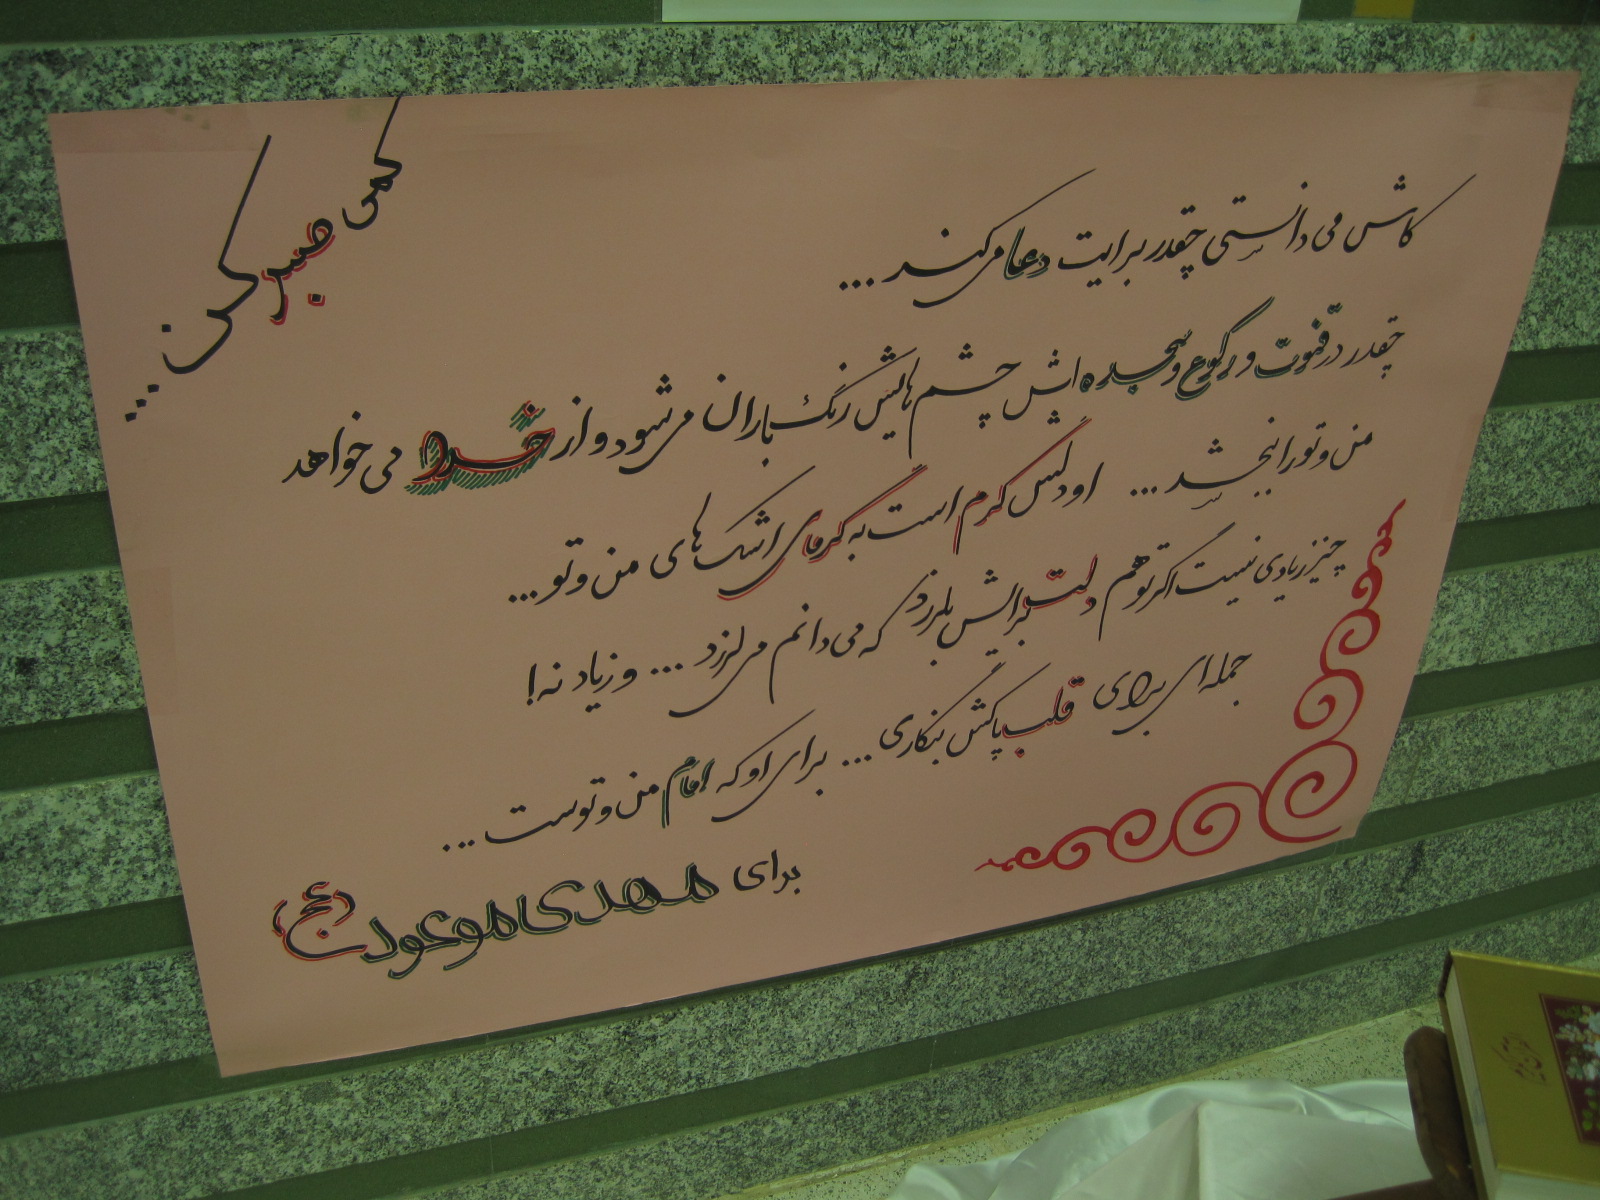 کمی صبر کن ...
کاش می دانستی چقدر برایت دعا می کند ...
چقدر در قنوت و رکوع و سجده اش چشم هایش رنگ باران می شود و از خدا می خواهد
من و تو را ببخشد ... او دلش گرم است به گرمای اشک های من و تو ...
چیز زیادی نیست اگر تو هم دلت برایش بلرزد که می دانم می لرزد ... و زیاد نه!
جمله ای برای قلب پاکش بنگاری ... برای او که امام من و توست ...
برای مهدی موعود (عج)